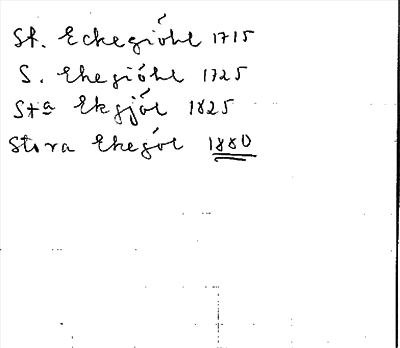 St. Eckegiöhl 1715
S. Ekegiöhl 1725
Sta Ekgjöl 1825
Stora Ekegöl 1880